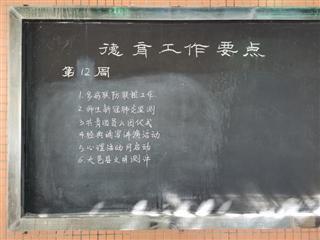 德育工作要点
第12周
1.多病联防联控工作
2.师生新冠肺炎监测
3.共青团员入团仪式
4.经典诵写讲演活动
5.心理活动月启动
6.大邑县文明测评